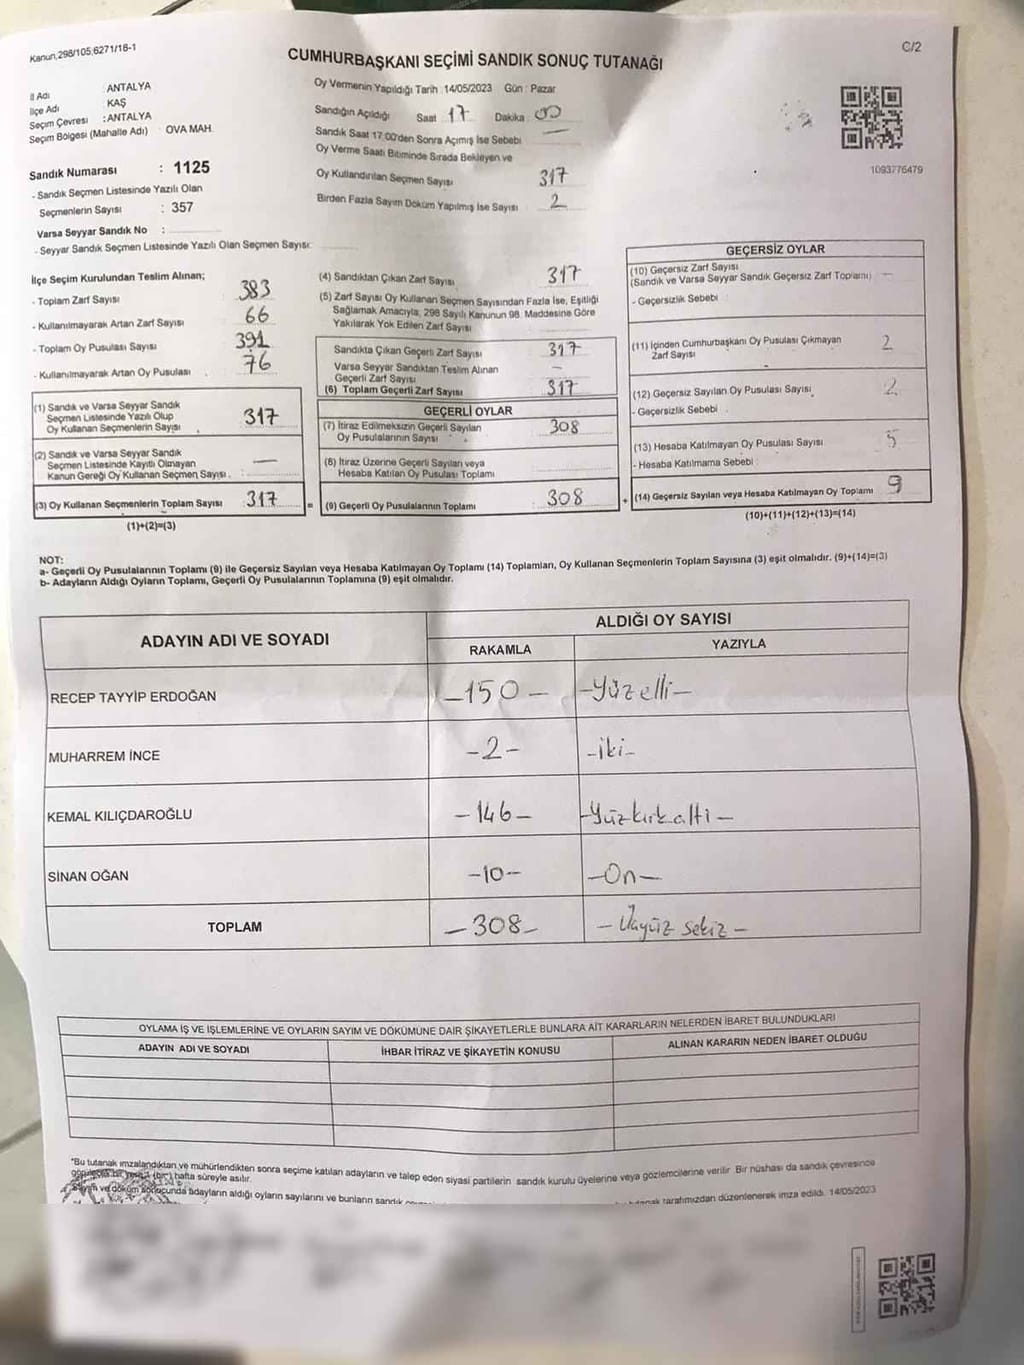 Kanun,298/105,6271/18-1
C/2
CUMHURBAŞKANI SEÇİMİ SANDIK SONUÇ TUTANAĞI
İl Adı : ANTALYA
İlçe Adı KAŞ
Seçim Çevresi : ANTALYA
Seçim Bölgesi (Mahalle Adı) OVA MAH.
Sandık Numarası : 1125
- Sandık Seçmen Listesinde Yazılı Olan
Seçmenlerin Sayısı : 357
Varsa Seyyar Sandık No :
- Seyyar Sandık Seçmen Listesinde Yazılı Olan Seçmen Sayısı:
Oy Vermenin Yapıldığı Tarih : 14/05/2023 Gün : Pazar
Sandığın Açıldığı Saat 17 Dakika : 00
Sandık Saat 17:00'den Sonra Açımış İse Sebebi —
Oy Verme Saati Bitiminde Sırada Bekleyen ve
Oy Kullandırılan Seçmen Sayısı 317
Birden Fazla Sayım Döküm Yapılmış İse Sayısı 2
1093776479
İlçe Seçim Kurulundan Teslim Alınan;
- Toplam Zarf Sayısı 383
- Kullanılmayarak Artan Zarf Sayısı 66
- Toplam Oy Pusulası Sayısı 391
- Kullanılmayarak Artan Oy Pusulası 76
(1) Sandık ve Varsa Seyyar Sandık
Seçmen Listesinde Yazılı Olup
Oy Kullanan Seçmenlerin Sayısı 317
(2) Sandık ve Varsa Seyyar Sandık
Seçmen Listesinde Kayıtlı Olmayan
Kanun Gereği Oy Kullanan Seçmen Sayısı . —
(3) Oy Kullanan Seçmenlerin Toplam Sayısı 317 =
(1)+(2)=(3)
(4) Sandıktan Çıkan Zarf Sayısı 317
(5) Zarf Sayısı Oy Kullanan Seçmen Sayısından Fazla İse, Eşitliği
Sağlamak Amacıyla, 298 Sayılı Kanunun 98. Maddesine Göre
Yakılarak Yok Edilen Zarf Sayısı
Sandıkta Çıkan Geçerli Zarf Sayısı 317
Varsa Seyyar Sandıktan Teslim Alınan
Geçerli Zarf Sayısı —
(6) Toplam Geçerli Zarf Sayısı 317
GEÇERLİ OYLAR
(7) İtiraz Edilmeksizin Geçerli Sayılan
Oy Pusulalarının Sayısı 308
(8) İtiraz Üzerine Geçerli Sayılan veya
Hesaba Katılan Oy Pusulası Toplamı
(9) Geçerli Oy Pusulalarının Toplamı 308 +
GEÇERSİZ OYLAR
(10) Geçersiz Zarf Sayısı
(Sandık ve Varsa Seyyar Sandık Geçersiz Zarf Toplamı) —
- Geçersizlik Sebebi :
(11) İçinden Cumhurbaşkanı Oy Pusulası Çıkmayan
Zarf Sayısı 2
(12) Geçersiz Sayılan Oy Pusulası Sayısı 2
- Geçersizlik Sebebi .
(13) Hesaba Katılmayan Oy Pusulası Sayısı 5
- Hesaba Katılmama Sebebi :
(14) Geçersiz Sayılan veya Hesaba Katılmayan Oy Toplamı 9
(10)+(11)+(12)+(13)=(14)
NOT:
a- Geçerli Oy Pusulalarının Toplamı (9) ile Geçersiz Sayılan veya Hesaba Katılmayan Oy Toplamı (14) Toplamları, Oy Kullanan Seçmenlerin Toplam Sayısına (3) eşit olmalıdır. (9)+(14)=(3)
b- Adayların Aldığı Oyların Toplamı, Geçerli Oy Pusulalarının Toplamına (9) eşit olmalıdır.
ADAYIN ADI VE SOYADI ALDIĞI OY SAYISI
RAKAMLA YAZIYLA
RECEP TAYYİP ERDOĞAN -150- -Yüzelli-
MUHARREM İNCE -2- -iki-
KEMAL KILIÇDAROĞLU -146- -Yüzkırkaltı-
SİNAN OĞAN -10- -On-
TOPLAM -308- -Üçyüz sekiz-
OYLAMA İŞ VE İŞLEMLERİNE VE OYLARIN SAYIM VE DÖKÜMÜNE DAİR ŞİKAYETLERLE BUNLARA AİT KARARLARIN NELERDEN İBARET BULUNDUKLARI
ADAYIN ADI VE SOYADI İHBAR İTİRAZ VE ŞİKAYETİN KONUSU ALINAN KARARIN NEDEN İBARET OLDUĞU
*Bu tutanak imzalandıktan ve mühürlendikten sonra seçime katılan adayların ve talep eden siyasi partilerin sandık kurulu üyelerine veya gözlemcilerine verilir. Bir nüshası da sandık çevresinde
görülecek bir yere 1 (bir) hafta süreyle asılır.
Sayım ve döküm sonucunda adayların aldığı oyların sayılarını ve bunların sandık tutanak tarafımızdan düzenlenerek imza edildi. 14/05/2023